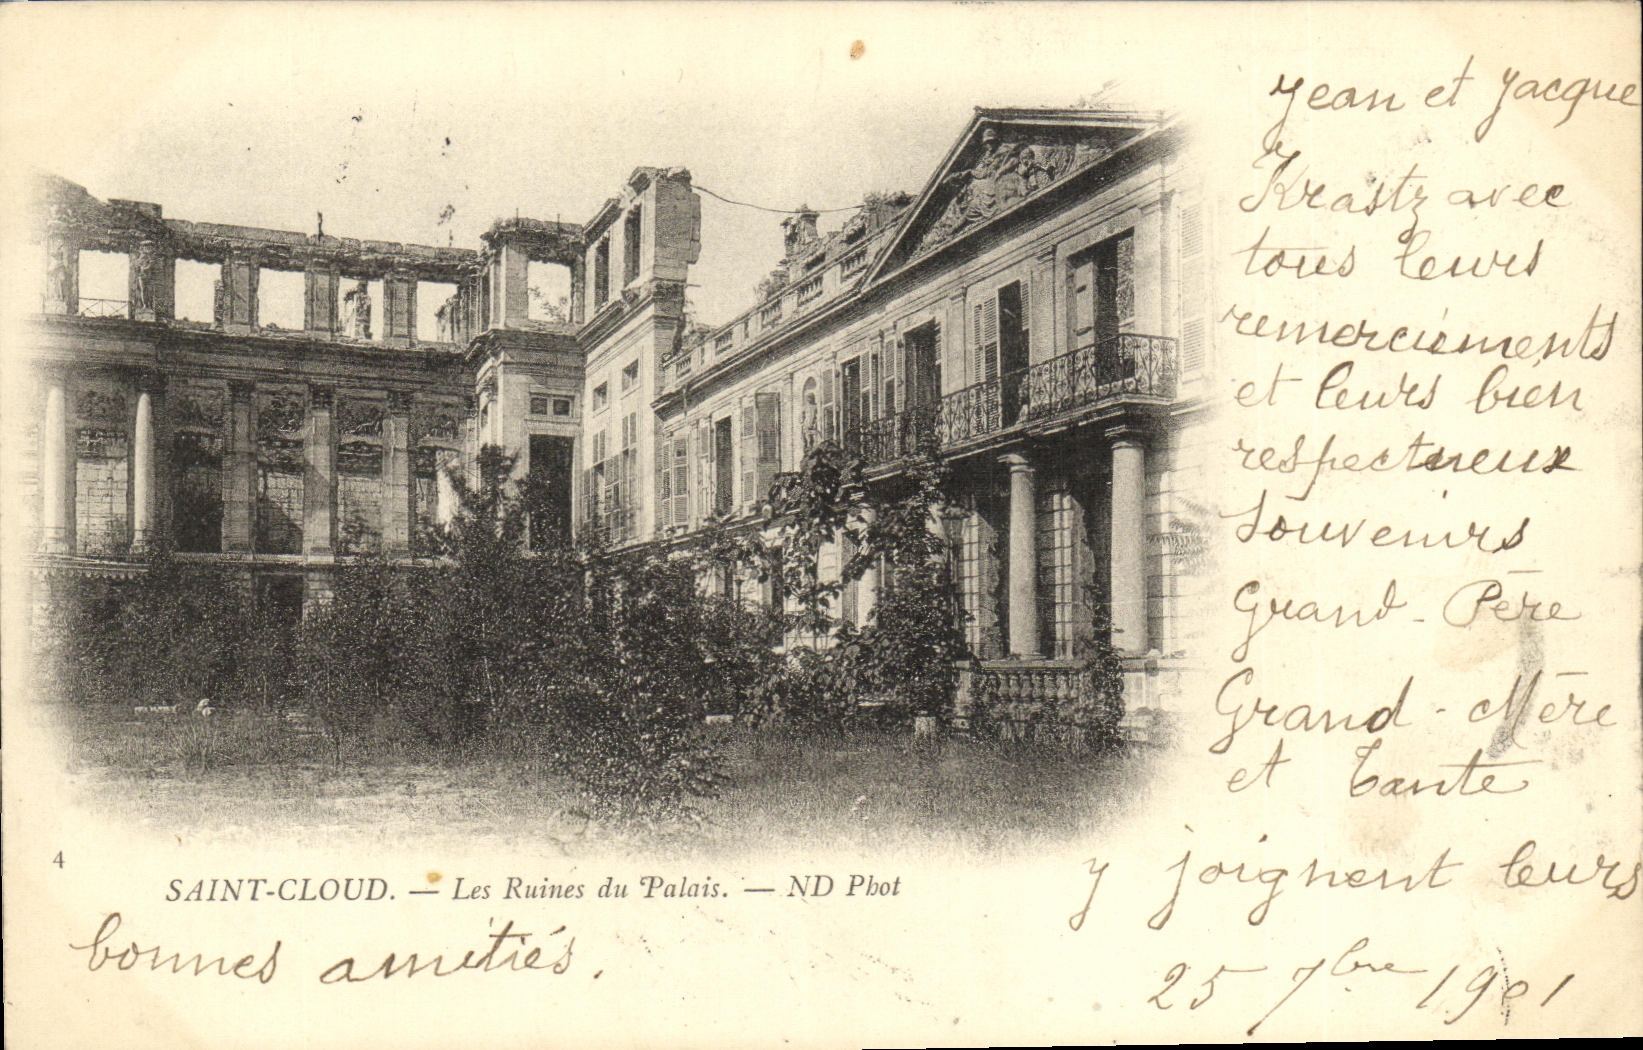 Jean et Jacque
Krastz avec
tous leurs
remerciements
et leurs bien
respectueux
souvenirs
Grand-Père
Grand-Mère
et Tante
y joignent leurs
4
SAINT-CLOUD. — Les Ruines du Palais. — ND Phot
bonnes amitiés.
25 7bre 1901